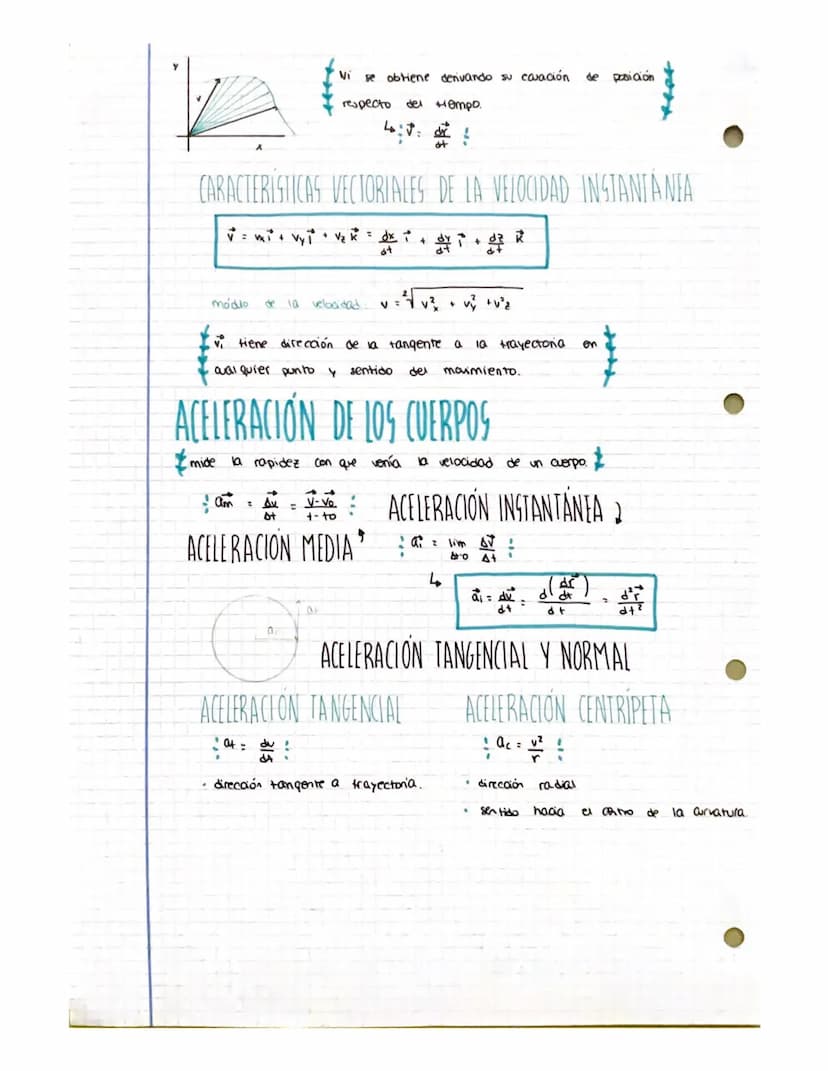 y
v
x
Vi se obtiene derivando su ecuación de posición
respecto del tiempo.
↳ v⃗ = dr⃗/dt
CARACTERÍSTICAS VECTORIALES DE LA VELOCIDAD INSTANTÁNEA
v⃗ = vx i⃗ + vy j⃗ + vz k⃗ = dx/dt i⃗ + dy/dt j⃗ + dz/dt k⃗
módulo de la velocidad: v = ²√(v²x + v²y + v²z)
v⃗i tiene dirección de la tangente a la trayectoria en
cualquier punto y sentido del movimiento.
ACELERACIÓN DE LOS CUERPOS
mide la rapidez con que venía la velocidad de un cuerpo.
a⃗m = Δv⃗/Δt = v⃗-v⃗0/t-t0
ACELERACIÓN MEDIA
ACELERACIÓN INSTANTÁNEA
a⃗i = lim Δt→0 Δv⃗/Δt
↳ a⃗i = dv⃗/dt = d(dr⃗/dt)/dt = d²r⃗/dt²
ACELERACIÓN TANGENCIAL Y NORMAL
ACELERACIÓN TANGENCIAL
at = dv/dt
· dirección tangente a trayectoria.
ACELERACIÓN CENTRÍPETA
ac = v²/r
· dirección radial
· sentido hacia el centro de la curvatura.